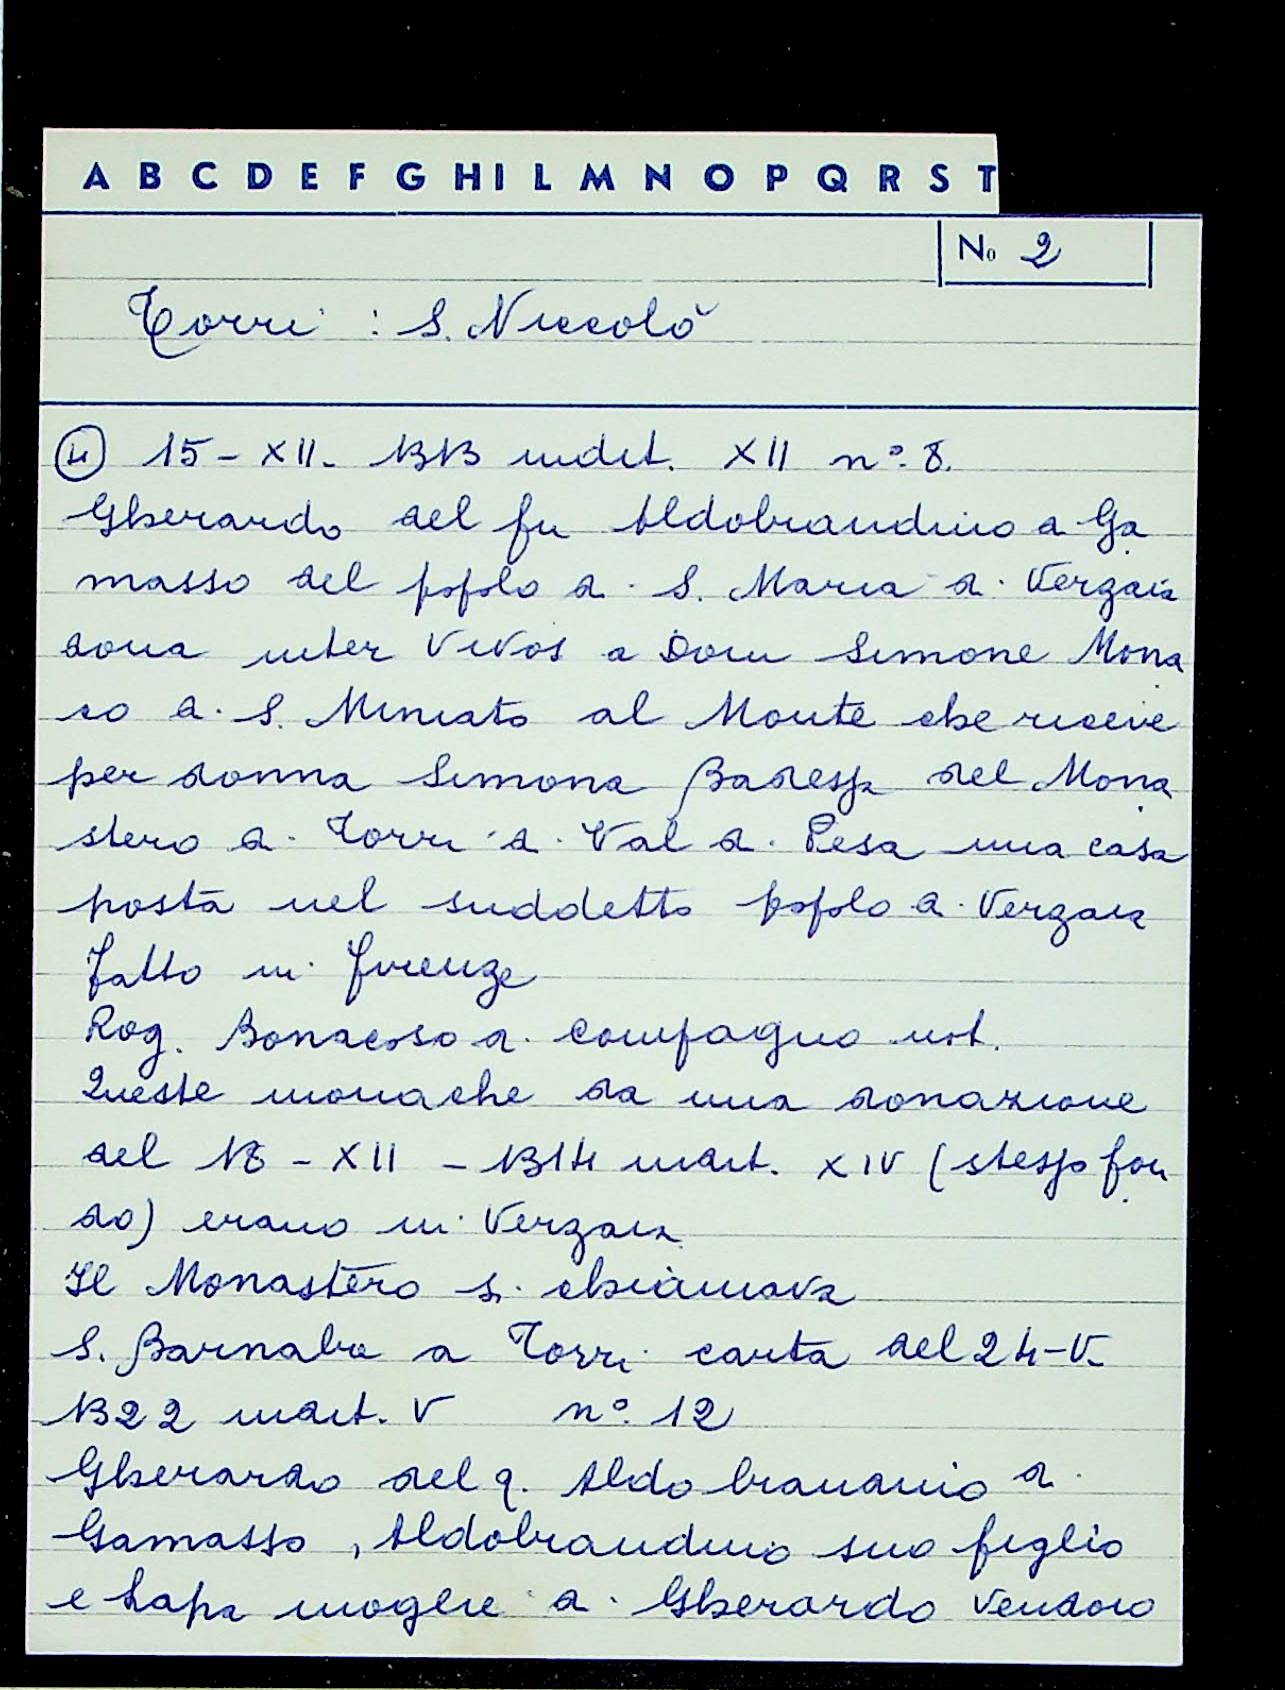 A B C D E F G H I L M N O P Q R S T
No 2
Torri : S. Niccolò
4 15 - XII - 1313 indit. XII n°. 8.
Gherardo del fu Aldobrandino di Ga
masso del popolo di S. Maria di Verzaia
dona inter vivos a Dom Simone Mona
co di S. Miniato al Monte che riceve
per donna Simona Badessa del Mona
stero di Torri di Val di Pesa una casa
posta nel suddetto popolo di Verzaia
fatto in Firenze
Rog. Bonacorso di Compagno not.
Queste monache da una donazione
del 18 - XII - 1314 indit. XIV (stesso fon
do) erano in Verzaia
Il Monastero si chiamava
S. Barnaba a Torri carta del 24 - V -
1322 indit. V n° 12
Gherardo del q. Aldobrandino di
Gamasso, Aldobrandino suo figlio
e Lapa moglie di Gherardo vendono